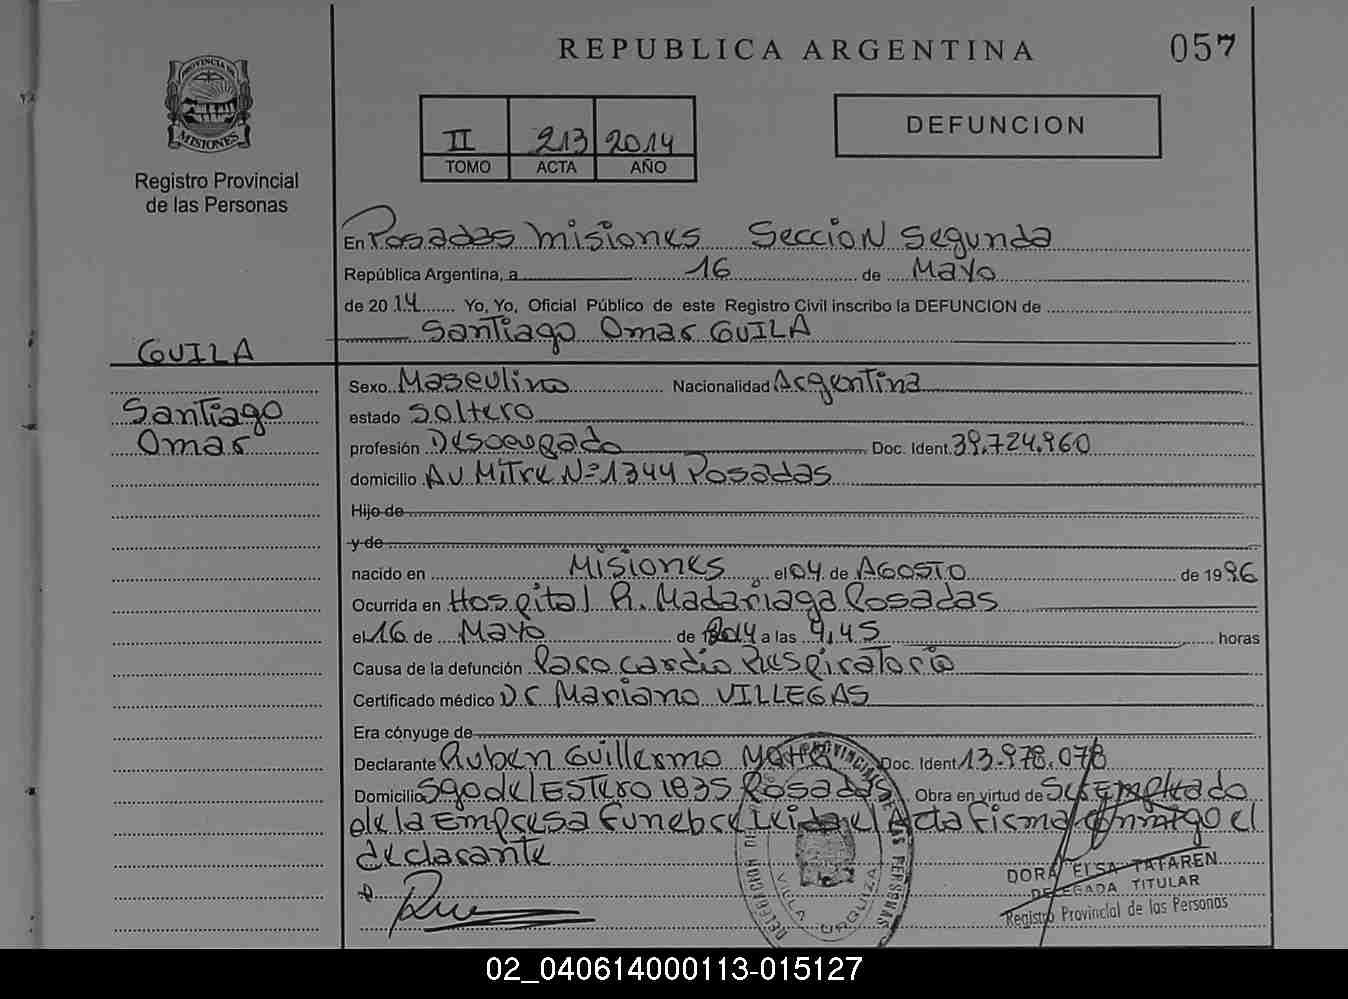 REPUBLICA ARGENTINA
057
PROVINCIA DE
MISIONES
Registro Provincial
de las Personas
II 213 2014
TOMO ACTA AÑO
DEFUNCION
En Posadas Misiones Seccion Segunda
República Argentina, a 16 de Mayo
de 2014 Yo, Yo, Oficial Público de este Registro Civil inscribo la DEFUNCION de
Santiago Omar GUILA
GUILA
Santiago
Omar
Sexo Masculino Nacionalidad Argentina
estado Soltero
profesión Desocupado Doc. Ident. 39.724.960
domicilio AV Mitre Nº 1344 Posadas
Hijo de
y de
nacido en Misiones el 04 de AGOSTO de 1996
Ocurrida en Hospital R. Madariaga Posadas
el 16 de Mayo de 2014 a las 9,45 horas
Causa de la defunción Paro Cardio Respiratorio
Certificado médico Dr Mariano VILLEGAS
Era cónyuge de
Declarante Ruben Guillermo Doc. Ident. 13.978.078
Domicilio Sgo del Estero 1835 Posadas Obra en virtud de Ser Empleado
de la Empresa Funebre Leida el Acta Firma Conmigo el
declarante
DELEGACION PROVINCIAL DE LAS PERSONAS
VILLA URQUIZA
DORA ELSA TATAREN
DELEGADA TITULAR
Registro Provincial de las Personas
02_040614000113-015127